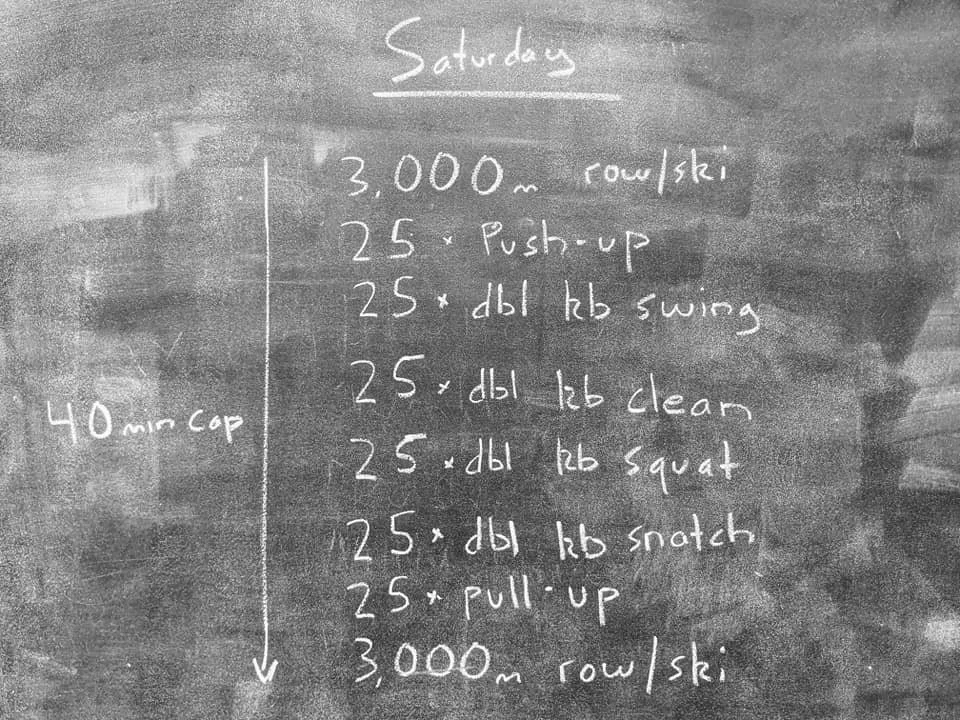 Saturday
3,000m row/ski
25 x Push-up
25 x dbl kb swing
25 x dbl kb clean
40 min cap
25 x dbl kb squat
25 x dbl kb snatch
25 x pull-up
3,000m row/ski